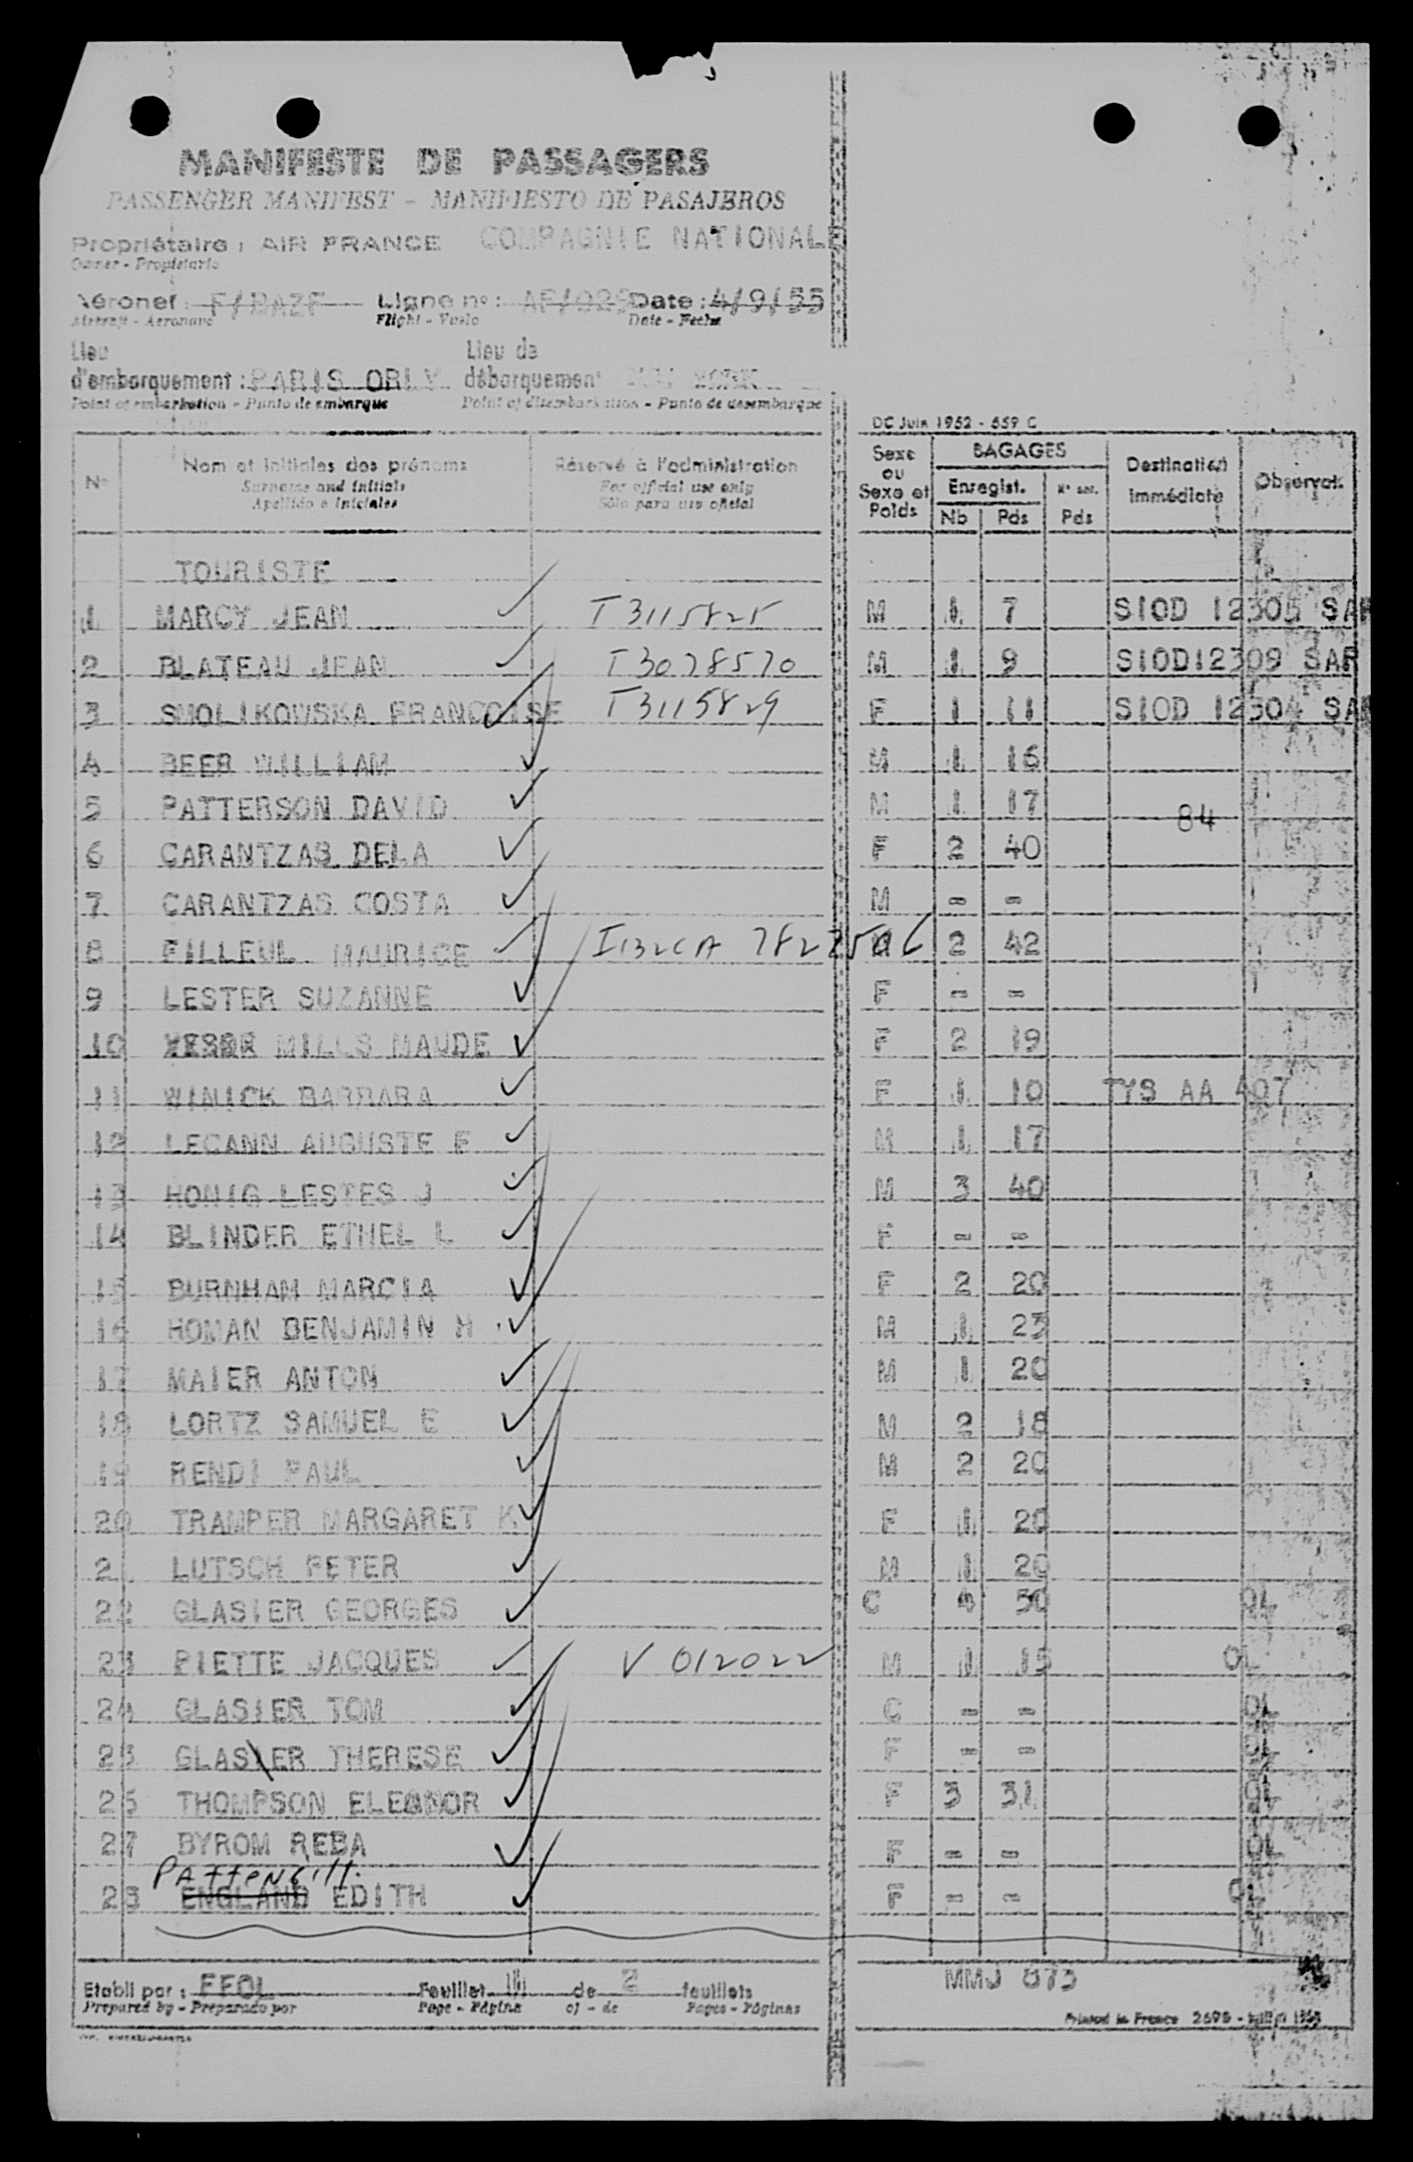 MANIFESTE DE PASSAGERS
PASSENGER MANIFEST - MANIFIESTO DE PASAJEROS
Propriétaire : AIR FRANCE COMPAGNIE NATIONALE
Owner - Propietario
Aéronef : F/BAZF Ligne n° : AF/029 Date : 4/9/55
Aircraft - Aeronave Flight - Vuelo Date - Fecha
Lieu Lieu de
d'embarquement : PARIS ORLY débarquement NEW YORK
Point of embarkation - Punto de embarque Point of disembarkation - Punto de desembarque
DC Juin 1952 - 559 C
N° Nom et initiales des prénoms Réservé à l'administration Sexe ou Sexe et Poids BAGAGES Destination immédiate Observat.
Surname and initials For official use only Enregist. N° enr.
Apellido e iniciales Sólo para uso oficial Nb Pds Pds
TOURISTE
1 MARCY JEAN T3115825 M 1 7 SIOD 12305 SAR
2 BLATEAU JEAN T3078570 M 1 9 SIOD12309 SAR
3 SMOLIKOWSKA FRANCOISE T3115829 F 1 11 SIOD 12304 SAR
4 BEER WILLIAM M 1 16
5 PATTERSON DAVID M 1 17 84
6 CARANTZAS DELA F 2 40
7 CARANTZAS COSTA M - -
8 FILLEUL MAURICE I132CA 7827506 M 2 42
9 LESTER SUZANNE F - -
10 MILLS MAUDE F 2 19
11 WINICK BARBARA F 1 10 TYS AA 407
12 LECANN AUGUSTE F M 1 17
13 HONIG LESTES J M 3 40
14 BLINDER ETHEL L F - -
15 BURNHAM MARCIA F 2 20
16 HOMAN BENJAMIN H M 1 23
17 MAIER ANTON M 1 20
18 LORTZ SAMUEL E M 2 18
19 RENDI PAUL M 2 20
20 TRAMPER MARGARET K F 1 20
2 LUTSCH PETER M 1 20
22 GLASIER GEORGES C 4 50 OL
23 PIETTE JACQUES V 012022 M 1 15 OL
24 GLASIER TOM C - - OL
25 GLASIER THERESE F - - OL
26 THOMPSON ELEANOR F 3 31 OL
27 BYROM REBA F - - OL
Pattengill
28 ENGLAND EDITH F - - OL
Etabli par : FFOL Feuillet 1 de 2 feuillets MMJ 873
Prepared by - Preparado por Page - Página of - de Pages - Páginas
Printed in France 2698